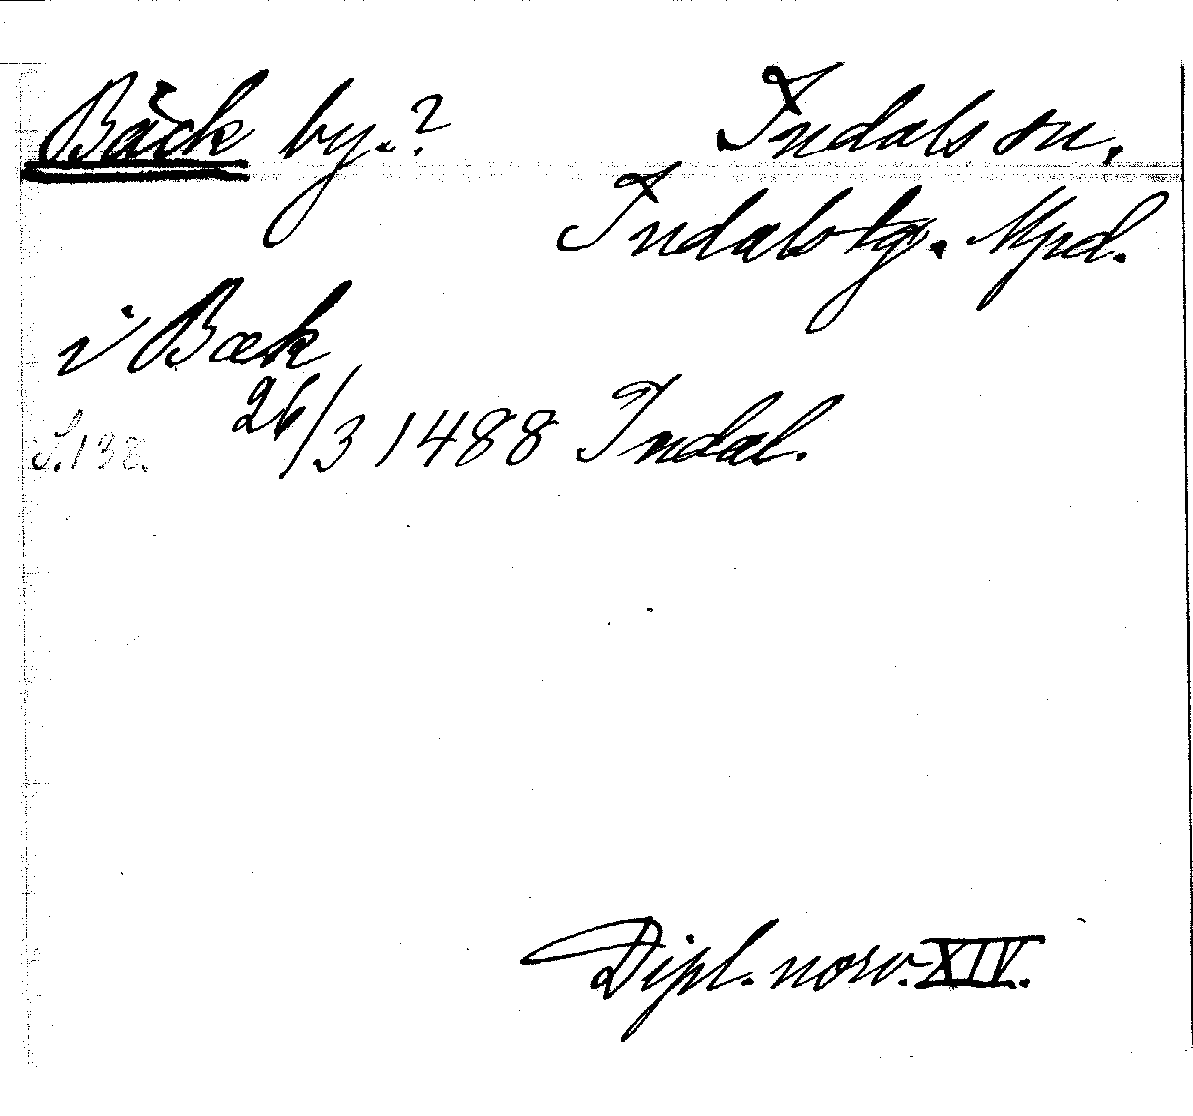 Bäck by.? Indals sn,
Indals tg. Mpd.
i Bæk
S. 138. 26/3 1488 Indal.
Dipl. norv. XIV.